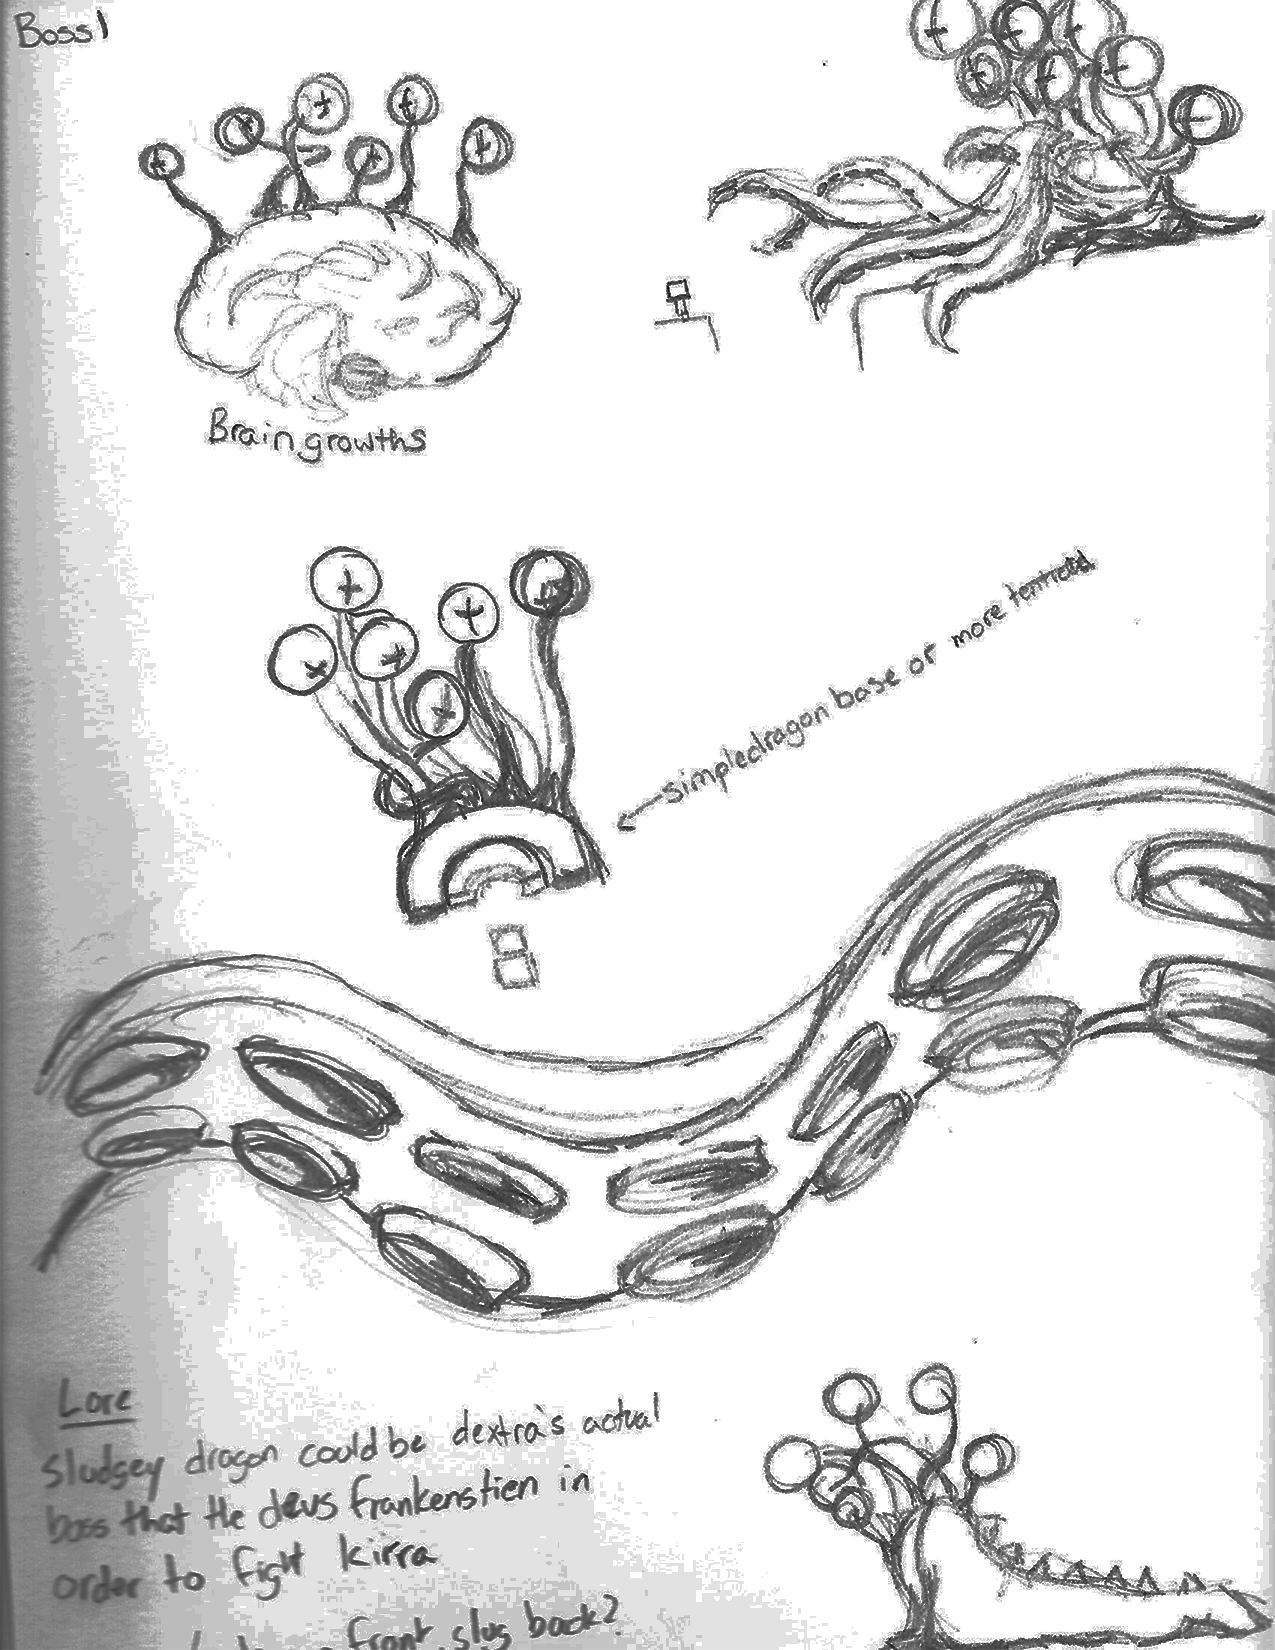 Boss 1
Brain growths
simple dragon base or more
Lore
sludgey dragon could be dextra's actual
boss that the devs frankenstien in
order to fight kirra
front, slug back?